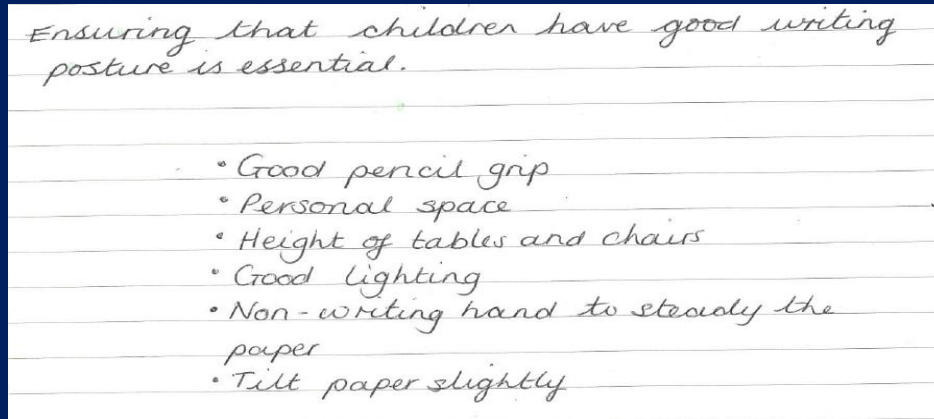 Ensuring that children have good writing
posture is essential.
• Good pencil grip
• Personal space
• Height of tables and chairs
• Good lighting
• Non-writing hand to steady the
paper
• Tilt paper slightly